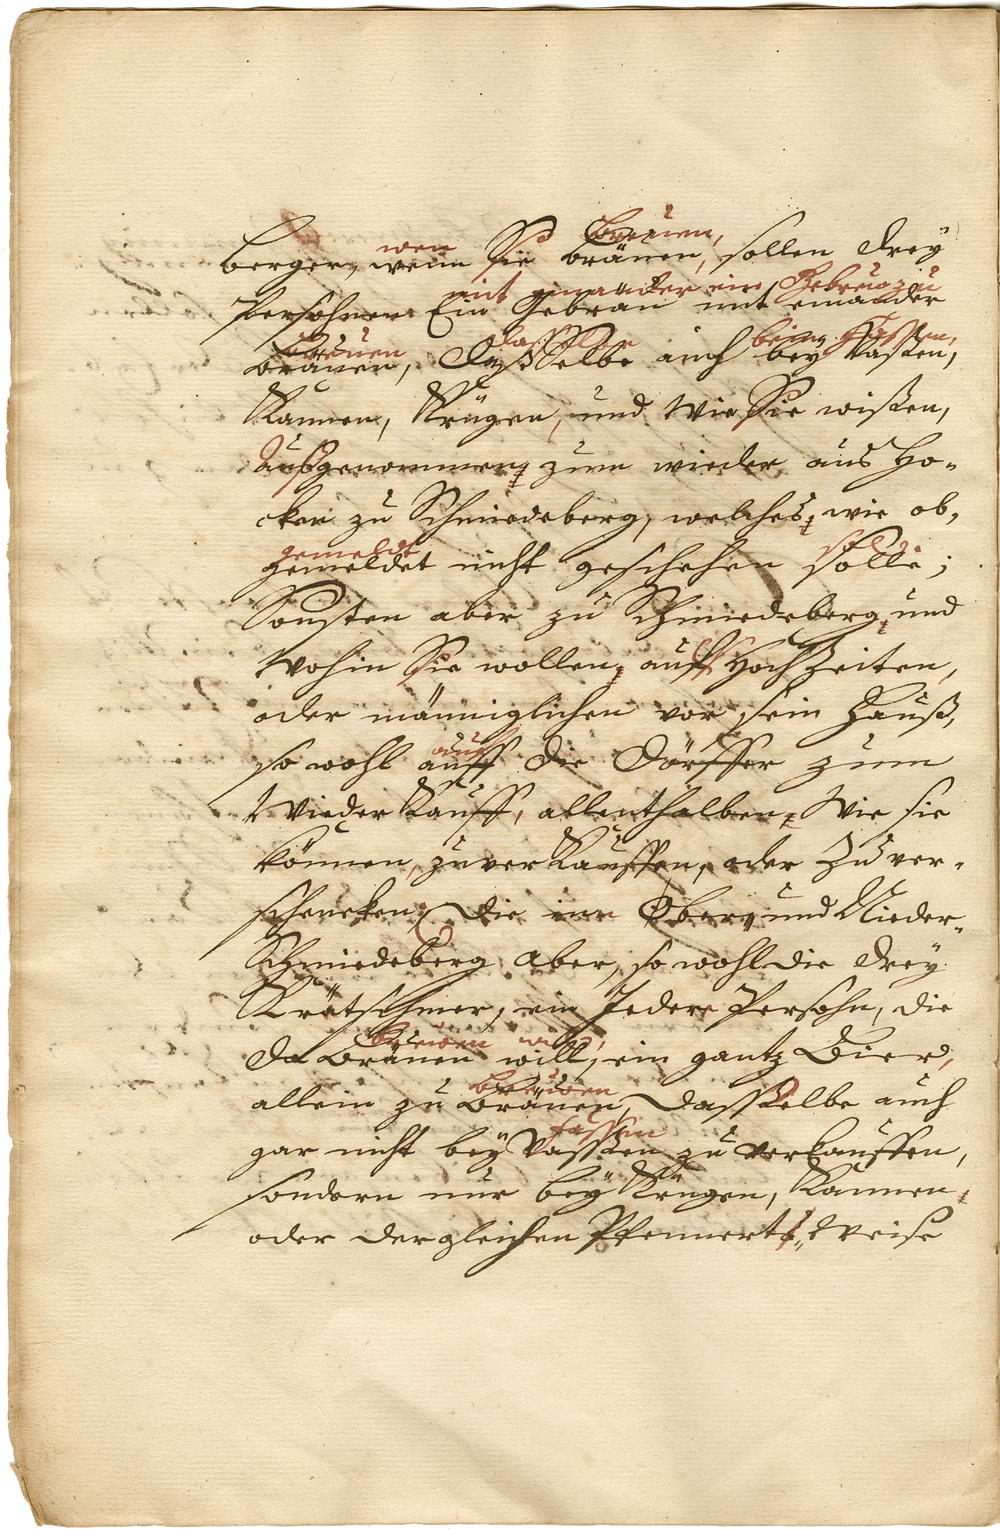 breuen,
wen
berger, wenn Sie bräuen, sollen drey
mit einander ein Gebreuozu
Persohnen Ein Gebräu mit einander
Breuen dasselbe beim Fassen,
bräuen, daßSelbe auch bey Vaßen,
Kannen, Krügen, und Wie Sie wißen,
Außgenommen, zum wieder aus Ho-
cken zu Schmiedeberg, welches, wie ob,
gemeldt solle
gemeldet nicht geschehen solle;
Sonsten aber zu Schmiedeberg, und
Wohin Sie wollen, auff HochZeiten,
oder männiglichen vor sein Hauß,
auf
so wohl auff die Dörffer zum
WiederKauff, allenthalben, Wie sie
können, zu verKauffen, oder Zu ver-
schencken, Die inn Ober, und Nieder-
Schmiedeberg aber, so wohl die drey
Krätschmer, ein Jeder Persohn, die
breuen will,
da bräuen will, ein gantz Bier,
Breuwen
allein zu bräuen, dasselbe auch
fassen
gar nicht bey Vaßen zu verkauffen,
sondern nur bey Krügen, Kannen,
oder dergleichen Pfennerts, Weise